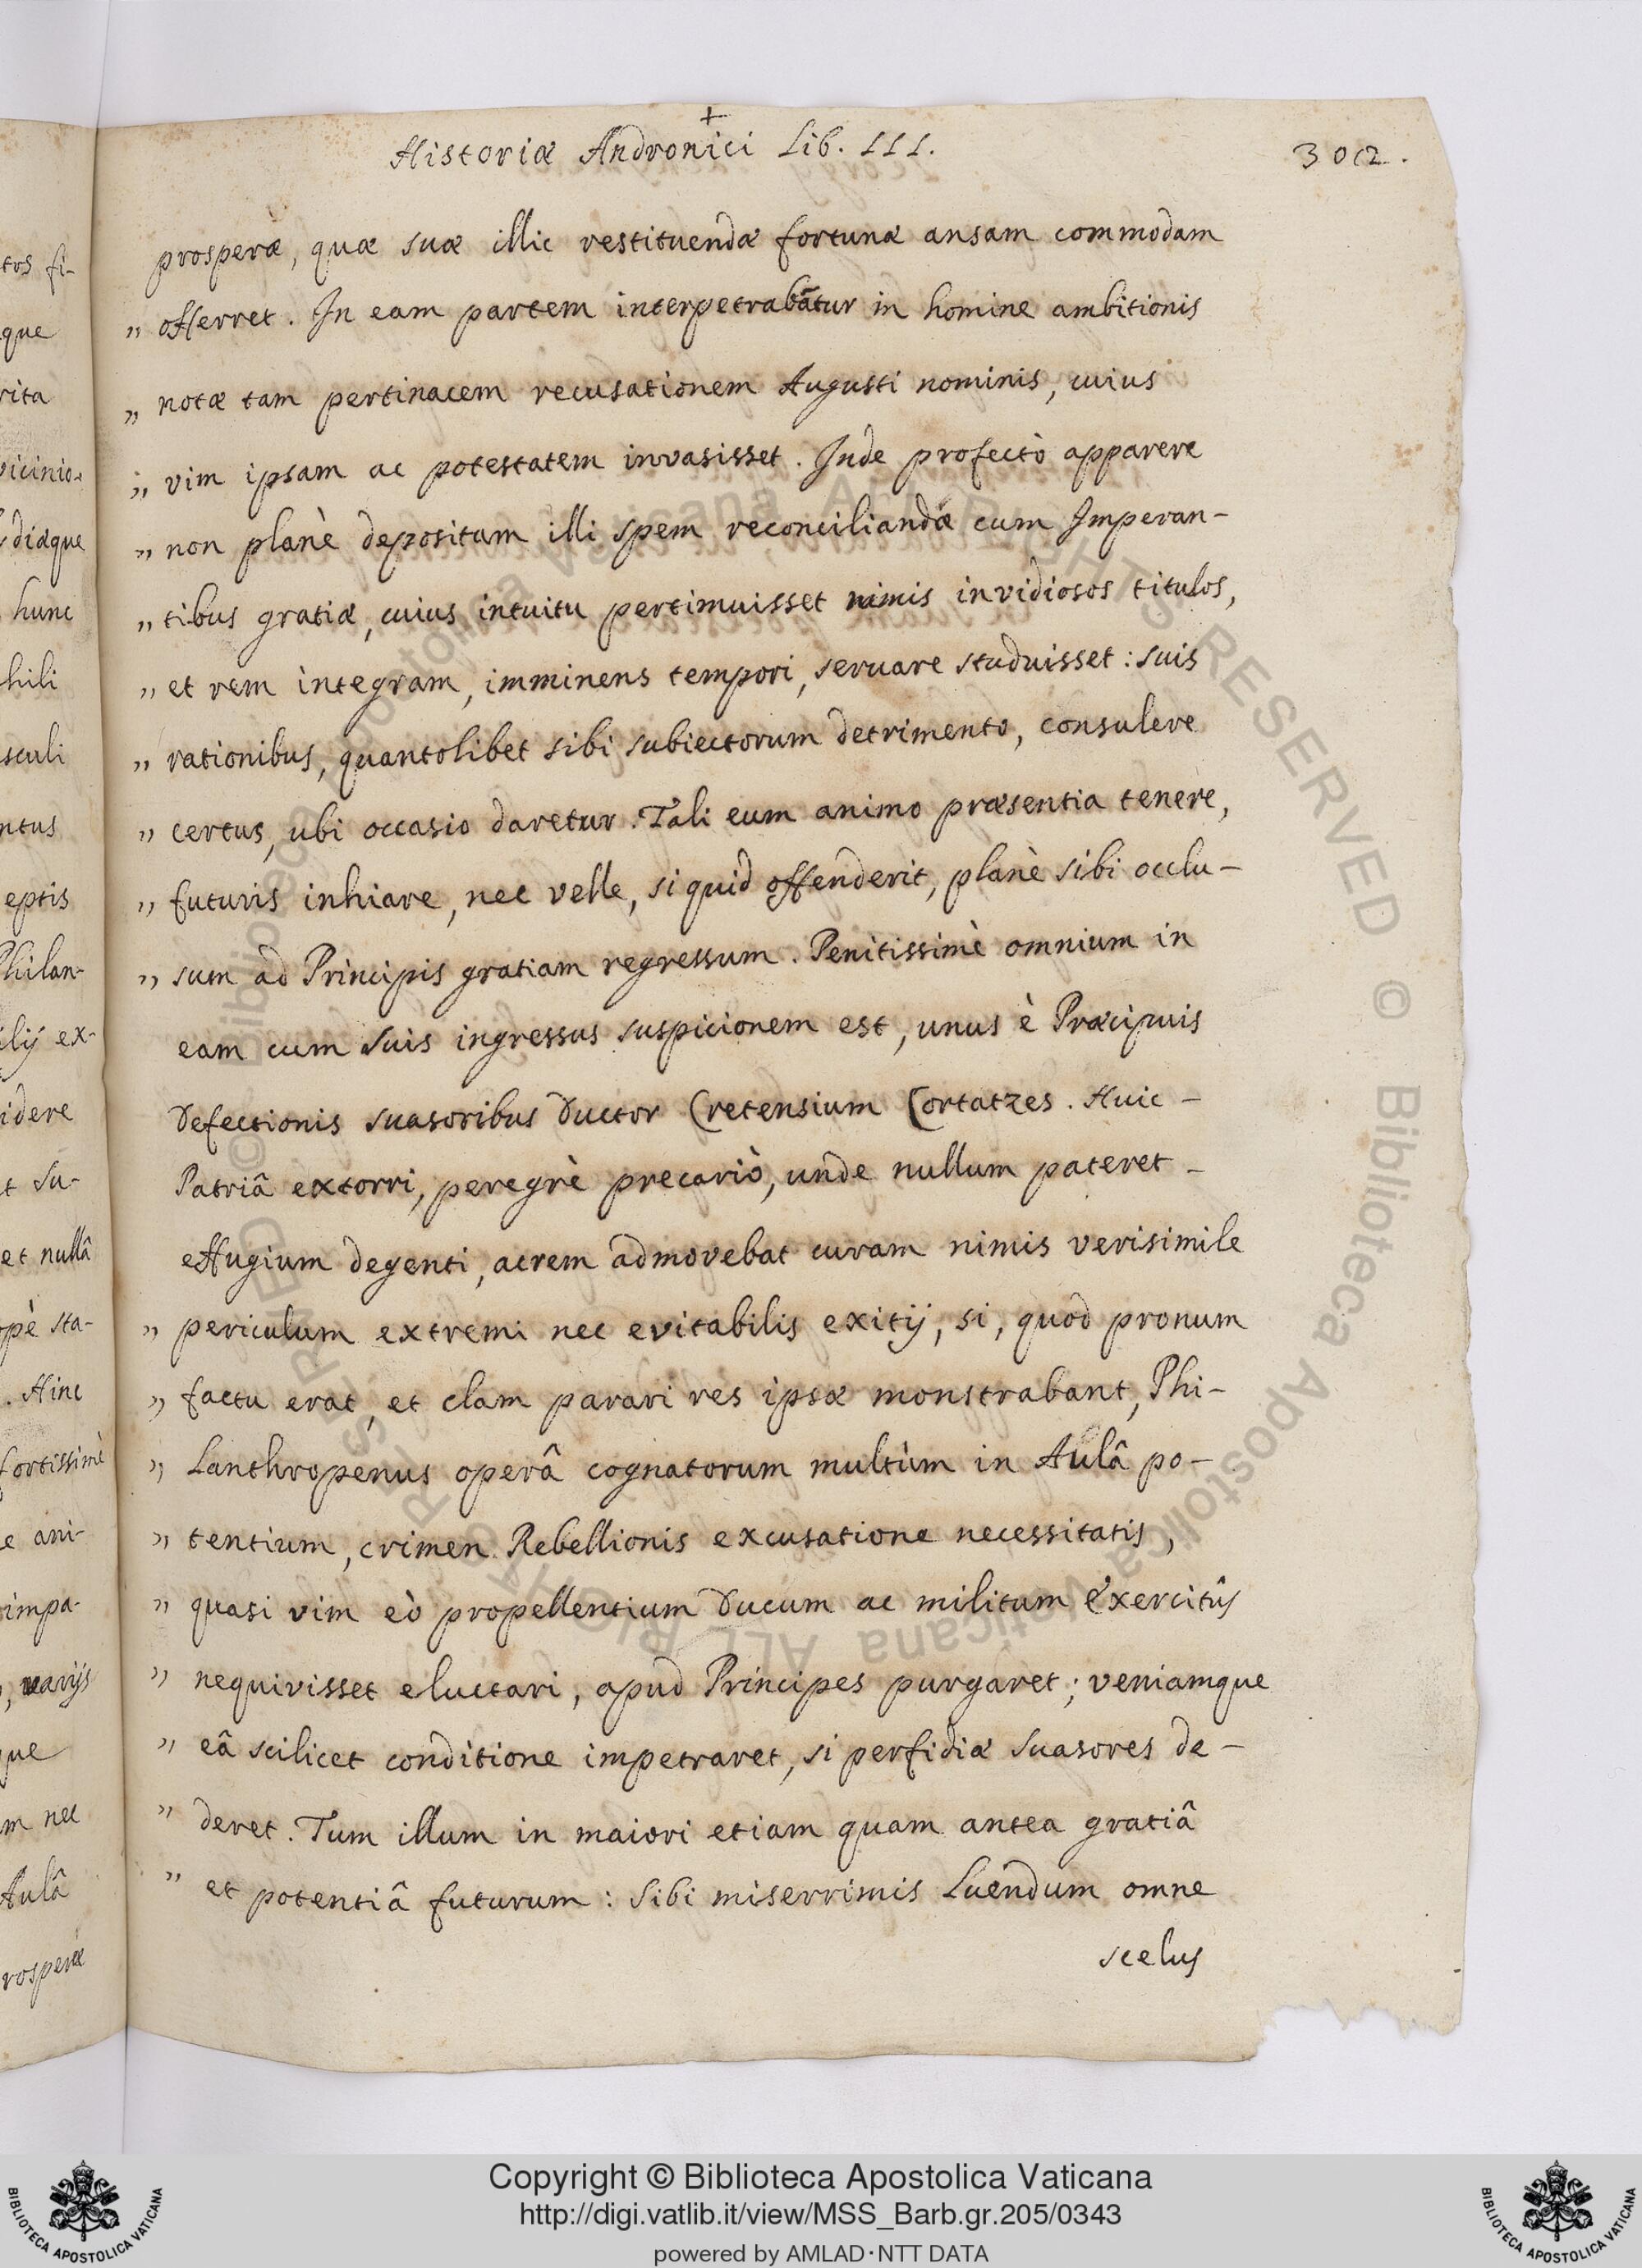 +
Historiæ Andronici Lib. III.
302.
prosperæ, quæ suæ illic restituendæ fortunæ ansam commodam
„ offerret. In eam partem interpetrabãtur in homine ambitionis
„ notæ tam pertinacem recusationem Augusti nominis, cuius
„ vim ipsam ac potestatem invasisset. Inde profectò apparere
„ non planè depositam illi spem reconciliandæ cum Imperan-
„ tibus gratiæ, cuius intuitu pertimuisset nimis invidiosos titulos,
„ et rem integram, imminens tempori, seruare studuisset: suis
„ rationibus, quantolibet sibi subiectorum detrimento, consulere
„ certus, ubi occasio daretur. Tali eum animo præsentia tenere,
„ futuris inhiare, nec velle, si quid offenderit, planè sibi occlu-
„ sum ad Principis gratiam regressum. Penitissimè omnium in
eam cum suis ingressus suspicionem est, unus è Præcipuis
Defectionis suasoribus Ductor Cretensium Cortatzes. Huic -
Patriâ extorri, peregrè precariò, unde nullum pateret -
effugium degenti, acrem admovebat curam nimis verisimile
„ periculum extremi nec evitabilis exitij, si, quod pronum
„ factu erat, et clam parari res ipsæ monstrabant, Phi-
„ Lanthropenus operâ cognatorum multùm in Aulâ po-
„ tentium, crimen Rebellionis excusatione necessitatis,
„ quasi vim eò propellentium Ducum ac militum Exercitûs
„ nequivisset eluctari, apud Principes purgaret; veniamque
„ eâ scilicet conditione impetraret, si perfidiæ suasores de-
„ deret. Tum illum in maiori etiam quam antea gratiâ
„ et potentiâ futurum: Sibi miserrimis Luendum omne
scelus
tos fi-
que
rita
vicinio-
diæque
hunc
hili
sculi
ntus
eptis
Philan-
ilij ex-
idere
t su-
et nullâ
opè sta-
. Hinc
fortissimè
e ani-
impa-
, varijs
que
m nec
Aulâ
rosperæ
© Biblioteca Apostolica Vaticana ALL RIGHTS RESERVED © Biblioteca Apostolica Vaticana ALL RIGHTS RESERVED
Copyright © Biblioteca Apostolica Vaticana
http://digi.vatlib.it/view/MSS_Barb.gr.205/0343
powered by AMLAD·NTT DATA
BIBLIOTECA APOSTOLICA VATICANA
BIBLIOTECA APOSTOLICA VATICANA